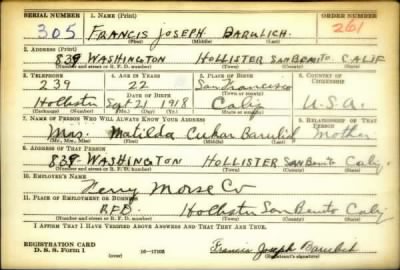 SERIAL NUMBER 1. NAME (Print) ORDER NUMBER
305 FRANCIS JOSEPH BARULICH. 261
(First) (Middle) (Last)
2. ADDRESS (Print)
839 WASHINGTON HOLLISTER SAN BENITO CALIF
(Number and street or R. F. D. number) (Town) (County) (State)
3. TELEPHONE 4. AGE IN YEARS 5. PLACE OF BIRTH 6. COUNTRY OF CITIZENSHIP
239 22 San Francisco
DATE OF BIRTH (Town or county)
Hollister Sept 21 1918 Calif U.S.A.
(Exchange) (Number) (Mo.) (Day) (Yr.) (State or country)
7. NAME OF PERSON WHO WILL ALWAYS KNOW YOUR ADDRESS 8. RELATIONSHIP OF THAT PERSON
Mrs. Matilda Cukar Barulich Mother
(Mr., Mrs., Miss) (First) (Middle) (Last)
9. ADDRESS OF THAT PERSON
839 WASHINGTON HOLLISTER SAN Benito Calif
(Number and street or R. F. D. number) (Town) (County) (State)
10. EMPLOYER'S NAME
Ferry Morse Co
11. PLACE OF EMPLOYMENT OR BUSINESS
RFD. Hollister San Benito Calif
(Number and street or R. F. D. number) (Town) (County) (State)
I AFFIRM THAT I HAVE VERIFIED ABOVE ANSWERS AND THAT THEY ARE TRUE.
REGISTRATION CARD
D. S. S. Form 1 (over) 16—17105 Francis Joseph Barulich
(Registrant's signature)